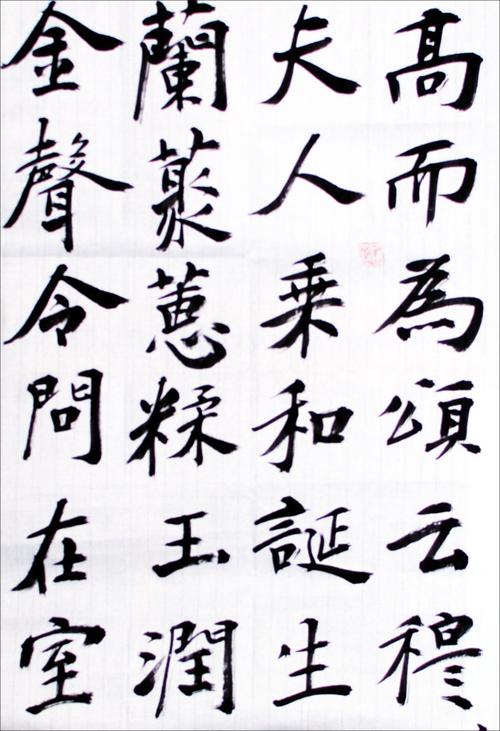 高而為頌云穆
夫人乗和誕生
蘭蒙蕙糅玉潤
金聲令問在室